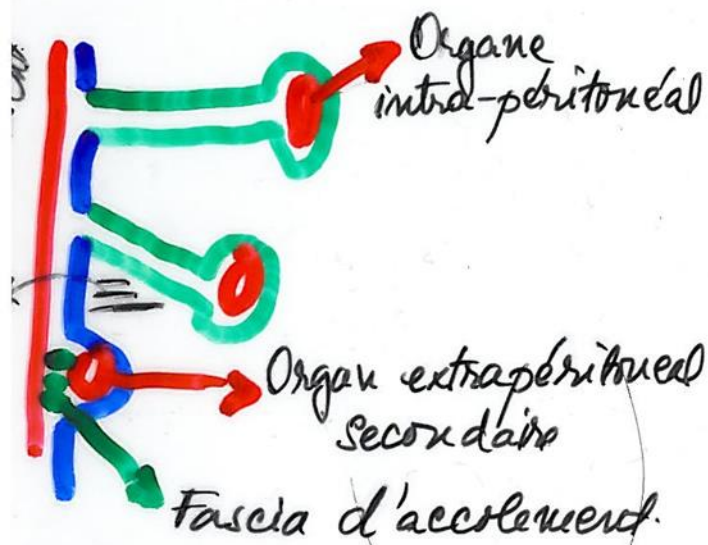 Organe
intra-péritonéal
Organ extrapéritoneal
secondaire
Fascia d'accolement.